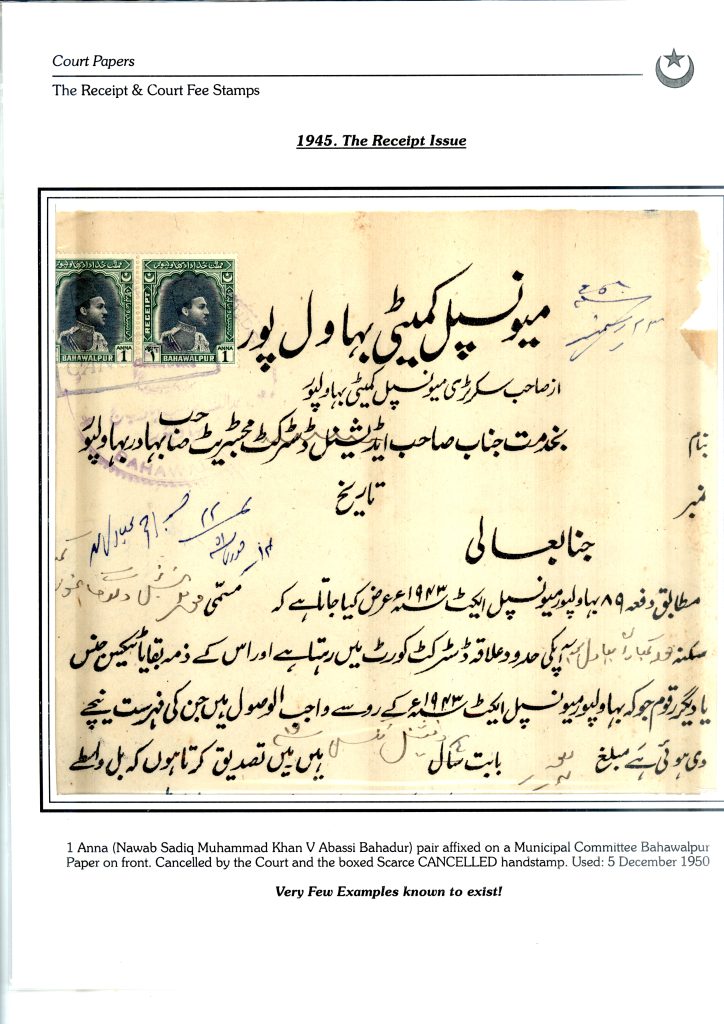 Court Papers
The Receipt & Court Fee Stamps
1945. The Receipt Issue
RECEIPT
ANNA
BAHAWALPUR 1
ANNA
BAHAWALPUR 1
میونسپل کمیٹی بہاول پور
از صاحب سکرٹری میونسپل کمیٹی بہاولپور
بخدمت جناب صاحب ایڈیشنل ڈسٹرکٹ مجسٹریٹ صاحب بہادر بہاولپور
بنام
نمبر
تاریخ
جناب عالی
مطابق دفعہ ۸۹ بہاولپور میونسپل ایکٹ ۱۹۴۳ء عرض کیا جاتا ہے کہ مسمی
سکنہ آپکی حدود علاقہ ڈسٹرکٹ کورٹ میں رہتا ہے اور اس کے ذمہ بقایا ٹیکس جنس
یا دیگر رقوم جو کہ بہاولپور میونسپل ایکٹ ۱۹۴۳ء کے روسے واجب الوصول ہیں جن کی فہرست نیچے
دی ہوئی ہے مبلغ بابت سال ہیں میں تصدیق کرتا ہوں کہ بل واسطے
1 Anna (Nawab Sadiq Muhammad Khan V Abassi Bahadur) pair affixed on a Municipal Committee Bahawalpur
Paper on front. Cancelled by the Court and the boxed Scarce CANCELLED handstamp. Used: 5 December 1950
Very Few Examples known to exist!